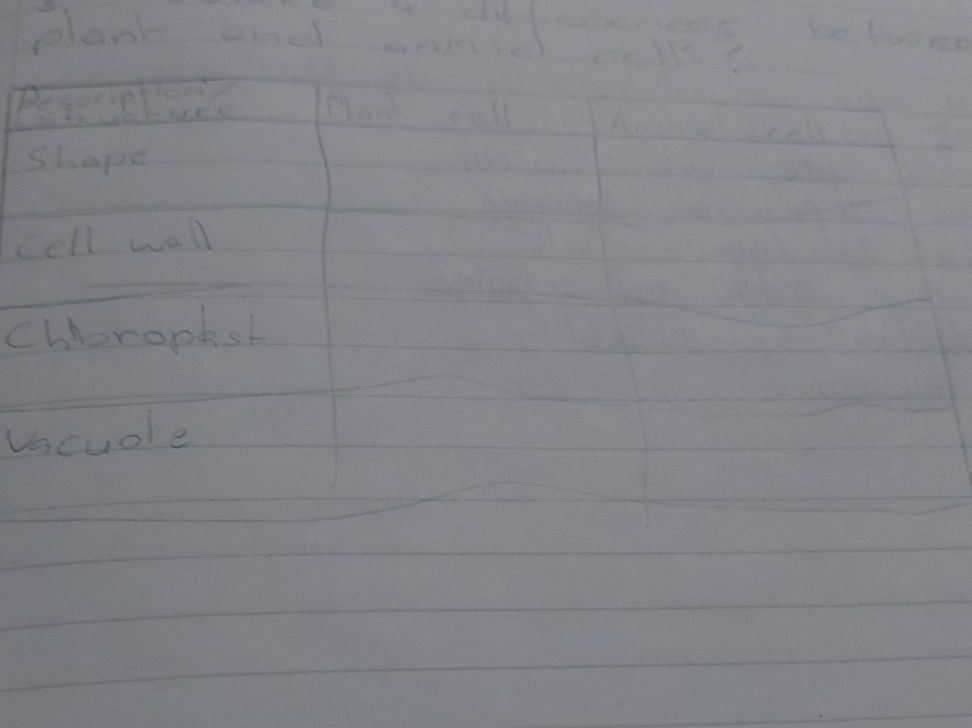 4 differences between
plant and animal cells?
Description/ Plant cell Animal cell
structure
Shape
Cell wall
Chloroplast
Vacuole